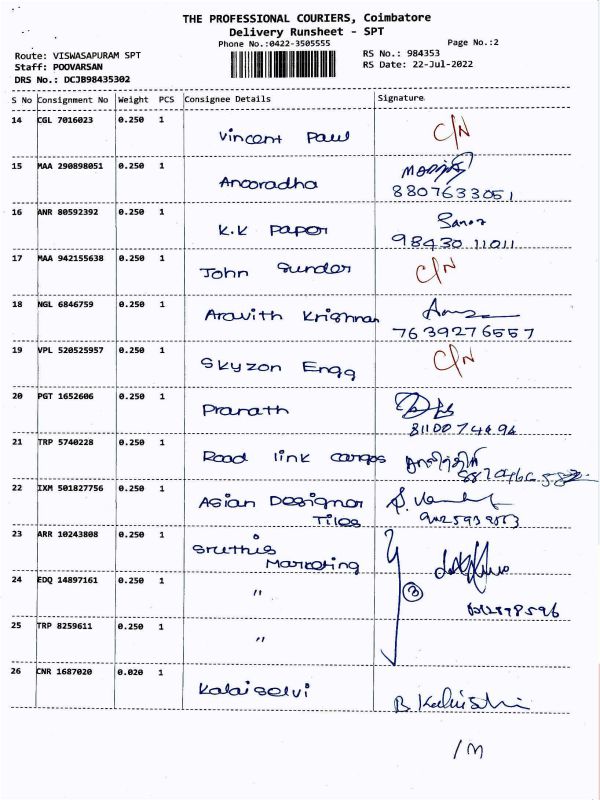 THE PROFESSIONAL COURIERS, Coimbatore
Delivery Runsheet - SPT
Phone No.:0422-3505555 Page No.:2
Route: VISWASAPURAM SPT RS No.: 984353
Staff: POOVARSAN RS Date: 22-Jul-2022
DRS No.: DCJB98435302
S No Consignment No Weight PCS Consignee Details Signature
14 CGL 7016023 0.250 1 Vincent Paul C/N
15 MAA 290898051 0.250 1 Anooradha
8807633051
16 ANR 80592392 0.250 1 K.K Paper
98430 11011
17 MAA 942155638 0.250 1 John Sunder C/N
18 NGL 6846759 0.250 1 Aravith Krishnan
7639276557
19 VPL 520525957 0.250 1 Skyzon Engg C/N
20 PGT 1652606 0.250 1 Pranath
21 TRP 5740228 0.250 1 Road link cargos
22 IXM 501827756 0.250 1 Asian Designor
Tiles
23 ARR 10243808 0.250 1 Sruthis
Marketing
24 EDQ 14897161 0.250 1 " 3
25 TRP 8259611 0.250 1 "
26 CNR 1687020 0.020 1 Kalaiselvi